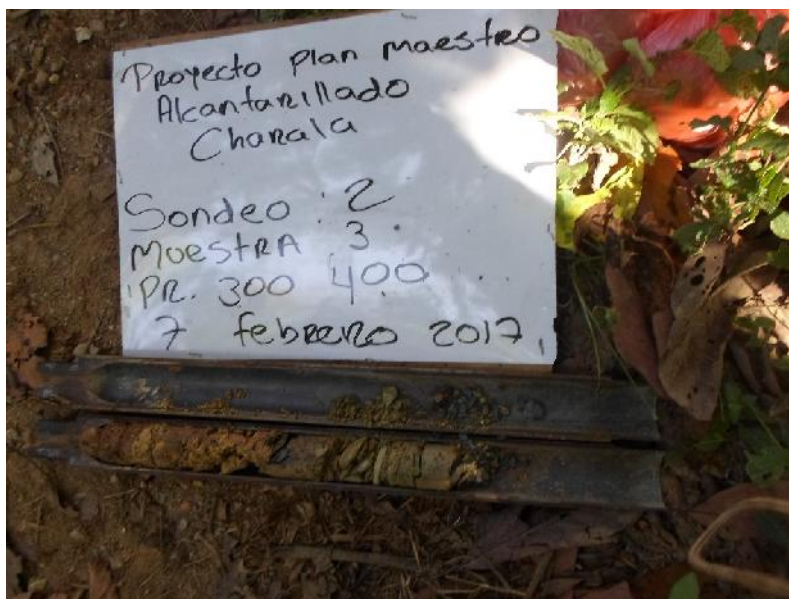 Proyecto plan maestro
Alcantarillado
Charala
Sondeo : 2
MUESTRA 3.
PR. 300 400
7 febrero 2017